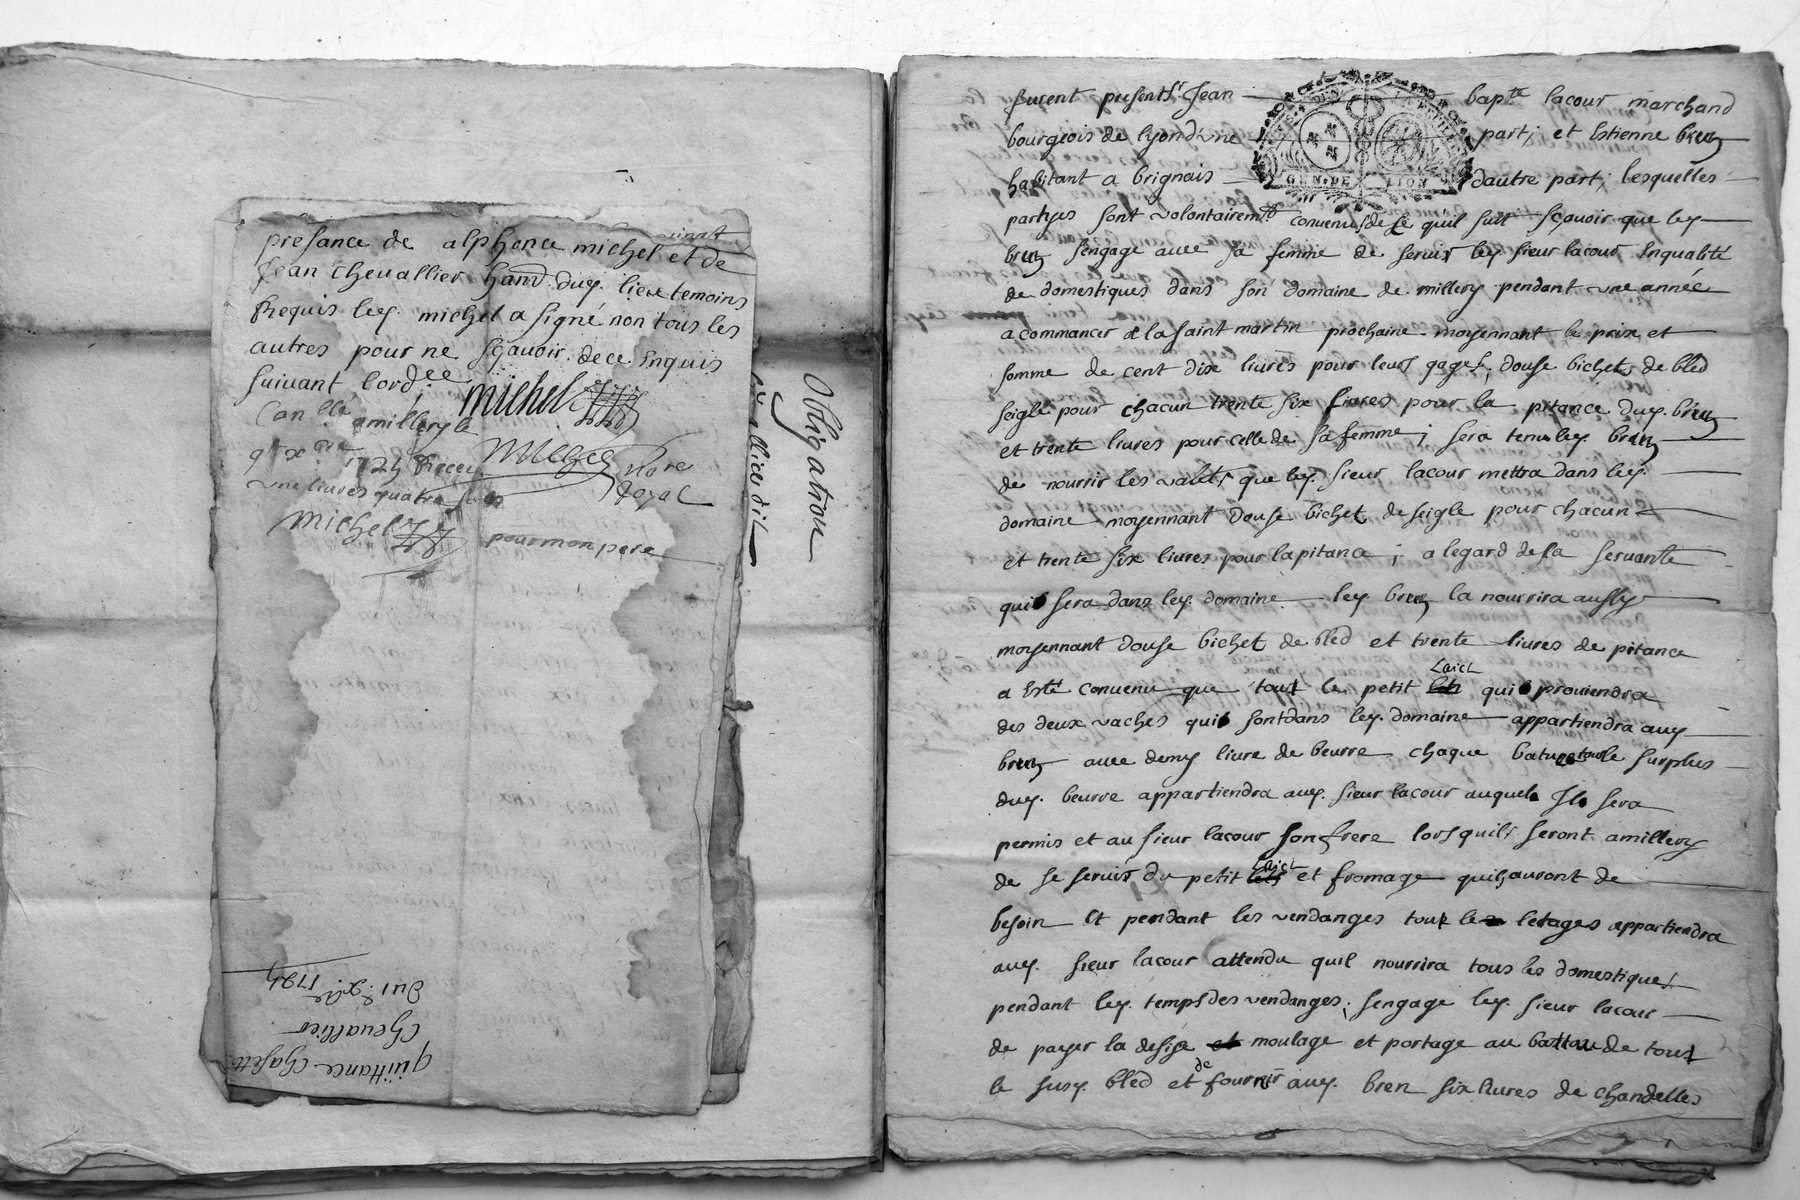 presance de alphonce michel et de
Jean chevallier hand duy. lieu temoins
Requis ley. michel a signé non tous les
autres pour ne sçauoir. de ce Enquis
suiuant lord.ee
michel
Con.llé amillery le
1725 Receu
une liures quatre sols
Nore
Royal
michel
pour mon pere
Obligation
quittance
Chevallier
Du 1. xbre 1725
furent presents. Jean bap.te lacour marchand
bourgeois de lyon d'une part; et Estienne bren
habitant a brignais d'autre part; lesquelles
partyes sont volontairem.t convenus de ce quil suit sçauoir que ley
bren sengage auec sa femme de seruir ley sieur lacour Enqualité
de domestiques dans son domaine de millery pendant une année
a commancer a la saint martin prochaine moyennant le prix et
somme de cent dix liures pour leurs gages, douse bichets de bled
seigle pour chacun trente six liures pour la pitance duy. bren
et trente liures pour celle de sa femme; sera tenu ley. bren
de nourrir les valets que ley. sieur lacour mettra dans ley.
domaine moyennant douse bichet de seigle pour chacun
et trente six liures pour la pitance; a legard de la seruante
qui sera dans ley. domaine ley. bren la nourrira aussy
moyennant douse bichet de bled et trente liures de pitance
a Esté convenu que tout le petit Laict qui prouiendra
des deux vaches qui sont dans ley. domaine appartiendra auy
bren auec demy liure de beurre chaque bature tout le surplus
duy. beurre appartiendra auy. sieur lacour auquel Il sera
permis et au sieur lacour son frere lorsquils seront amillery
de se seruir du petit Laict et fromage quils auront de
besoin Et pendant les vendanges tout le letages appartiendra
auy. sieur lacour attendu quil nourrira tous les domestiques
pendant ley. temps des vendanges; sengage ley. sieur lacour
de payer la moulage et portage au batteau de tout
le susy. bled et de fournir auy. bren six liures de chandelles